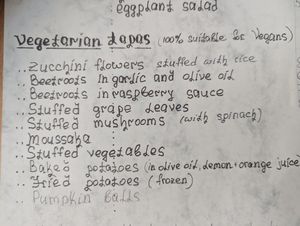 : eggplant salad
Vegetarian tapas (100% suitable for Vegans)
.. Zucchini flowers stuffed with rice
.. Beetroots in garlic and olive oil
.. Beetroots in raspberry sauce
.. Stuffed grape leaves
.. Stuffed mushrooms (with spinach)
.. Moussaka
.. Stuffed vegetables
.. Baked potatoes (in olive oil, lemon + orange juice
.. Fried potatoes (frozen)
.. Pumpkin balls